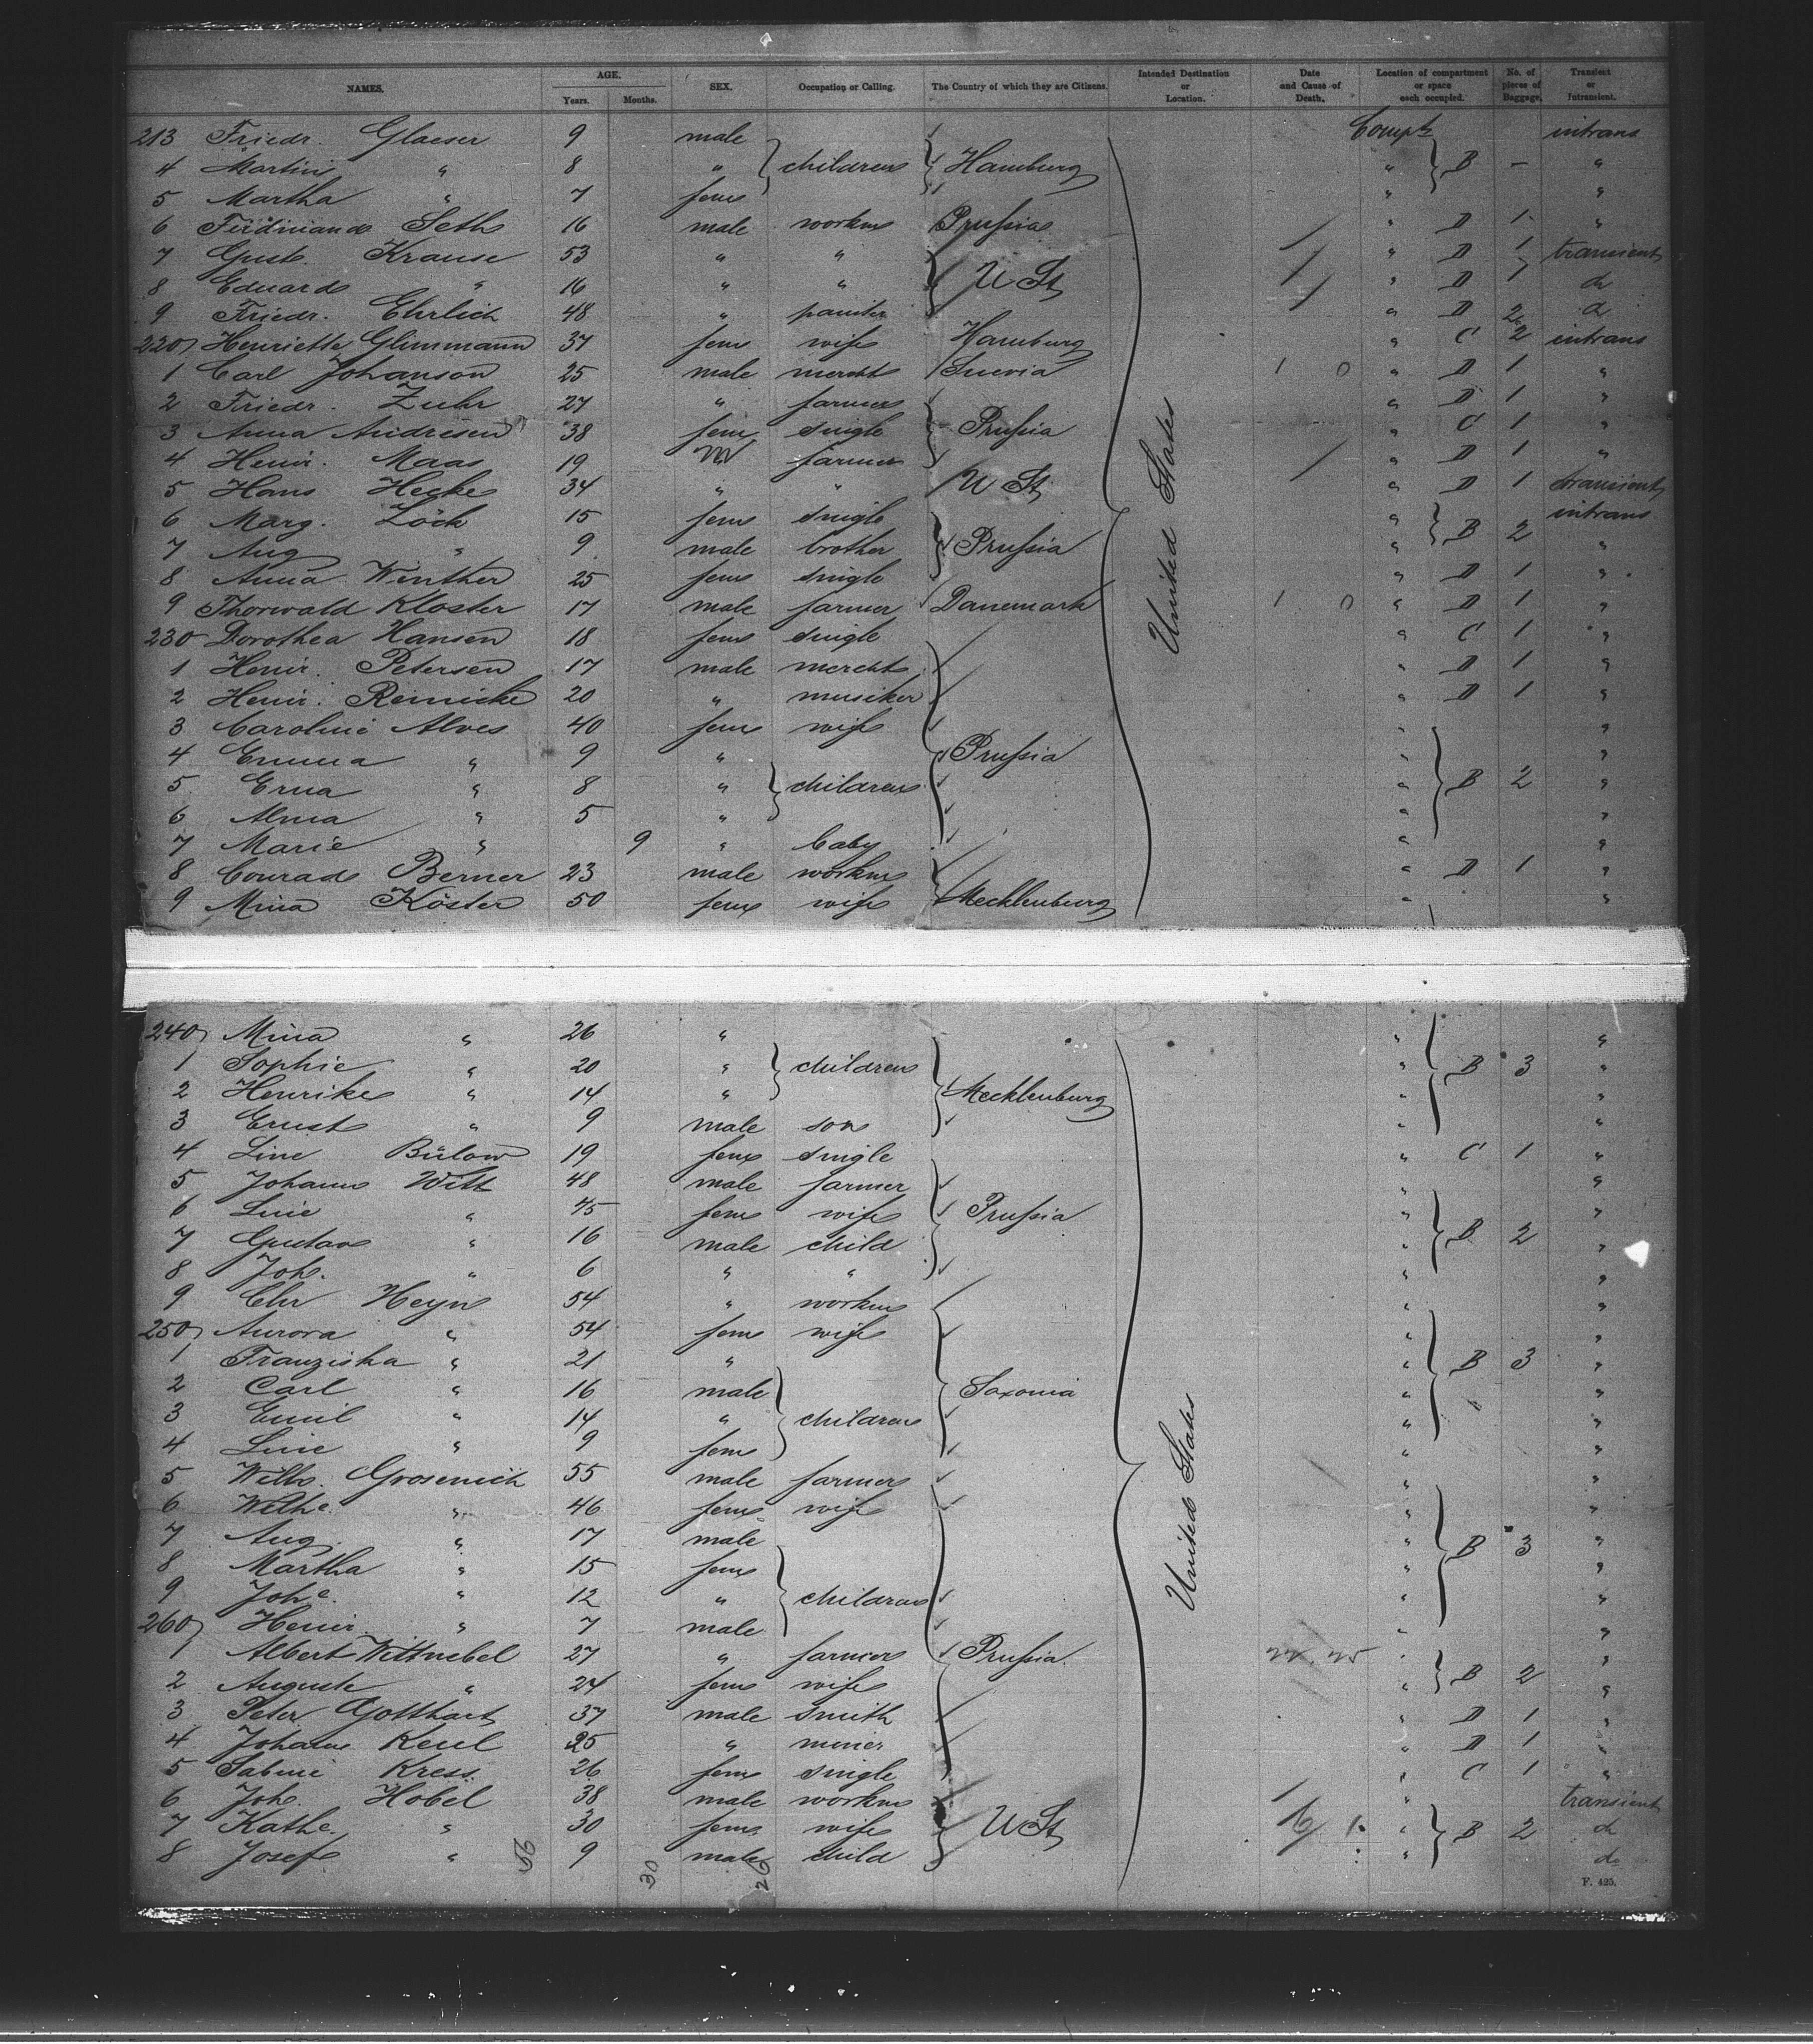 NAMES. AGE. Years. Months. SEX. Occupation or Calling. The Country of which they are Citizens. Intended Destination or Location. Date and Cause of Death. Location of compartment or space each occupied. No. of pieces of Baggage. Transient or Intransient.
213 Friedr. Glaeser 9 male Compt intrans
4 Martin " 8 " children Hamburg " B - "
5 Martha " 7 fem " "
6 Ferdinand Seth 16 male workm Prussia " D 1 "
7 Gust. Krause 53 " " " D 1 transient
8 Eduard " 16 " " U St " D 1 do
9 Friedr. Ehrlich 48 " painter " D 2 do
220 Henriette Glimmann 37 fem wife Hamburg " C 2 intrans
1 Carl Johanson 25 male mercht Suevia 1 0 " D 1 "
2 Friedr. Zuhr 27 " farmer " D 1 "
3 Anna Andresen 38 fem single Prussia " C 1 "
4 Heinr. Maas 19 M farmer " D 1 "
5 Hans Hecke 34 " " U St " D 1 transient
6 Marg. Löck 15 fem single " intrans
7 Aug " 9 male brother Prussia " B 2 "
8 Anna Winther 25 fem single " D 1 "
9 Thorwald Kloster 17 male farmer Danemark 1 0 " D 1 "
230 Dorothea Hansen 18 fem single " C 1 "
1 Heinr. Petersen 17 male mercht " D 1 "
2 Heinr. Reinicke 20 " musiker " D 1 "
3 Caroline Alves 40 fem wife " "
4 Emma " 9 " Prussia " "
5 Erna " 8 " children " B 2 "
6 Alma " 5 " " "
7 Marie " 9 " baby " "
8 Conrad Berner 23 male workm " D 1 "
9 Mina Köster 50 fem wife Mecklenburg " "
United States
240 Mina " 26 " " "
1 Sophie " 20 " children " B 3 "
2 Henrike " 14 " Mecklenburg " "
3 Ernst " 9 male son " "
4 Line Bülow 19 fem single " C 1 "
5 Johann Witt 48 male farmer " "
6 Line " 45 fem wife Prussia " "
7 Gustav " 16 male child " B 2 "
8 Joh. " 6 " " " "
9 Chr Heyn 54 " workm " "
250 Aurora " 54 fem wife " "
1 Franziska " 21 " " B 3 "
2 Carl " 16 male Saxonia " "
3 Emil " 14 " children " "
4 Line " 9 fem " "
5 Wilh. Grosenick 55 male farmer " "
6 Wilhe. " 46 fem wife " "
7 Aug. " 17 male " B 3 "
8 Martha " 15 fem " "
9 Johe. " 12 " children " "
260 Heinr. " 7 male " "
1 Albert Wittnebel 27 " farmer Prussia " "
2 Auguste " 24 fem wife " B 2 "
3 Peter Gotthart 37 male smith " D 1 "
4 Johann Keil 25 " miner " D 1 "
5 Sabine Kress 26 fem single " C 1 "
6 Joh. Hobel 38 male workm " transient
7 Kathe. " 30 fem wife U St " B 2 do
8 Josef " 9 male child " do
United States
56 30 26
F. 425.